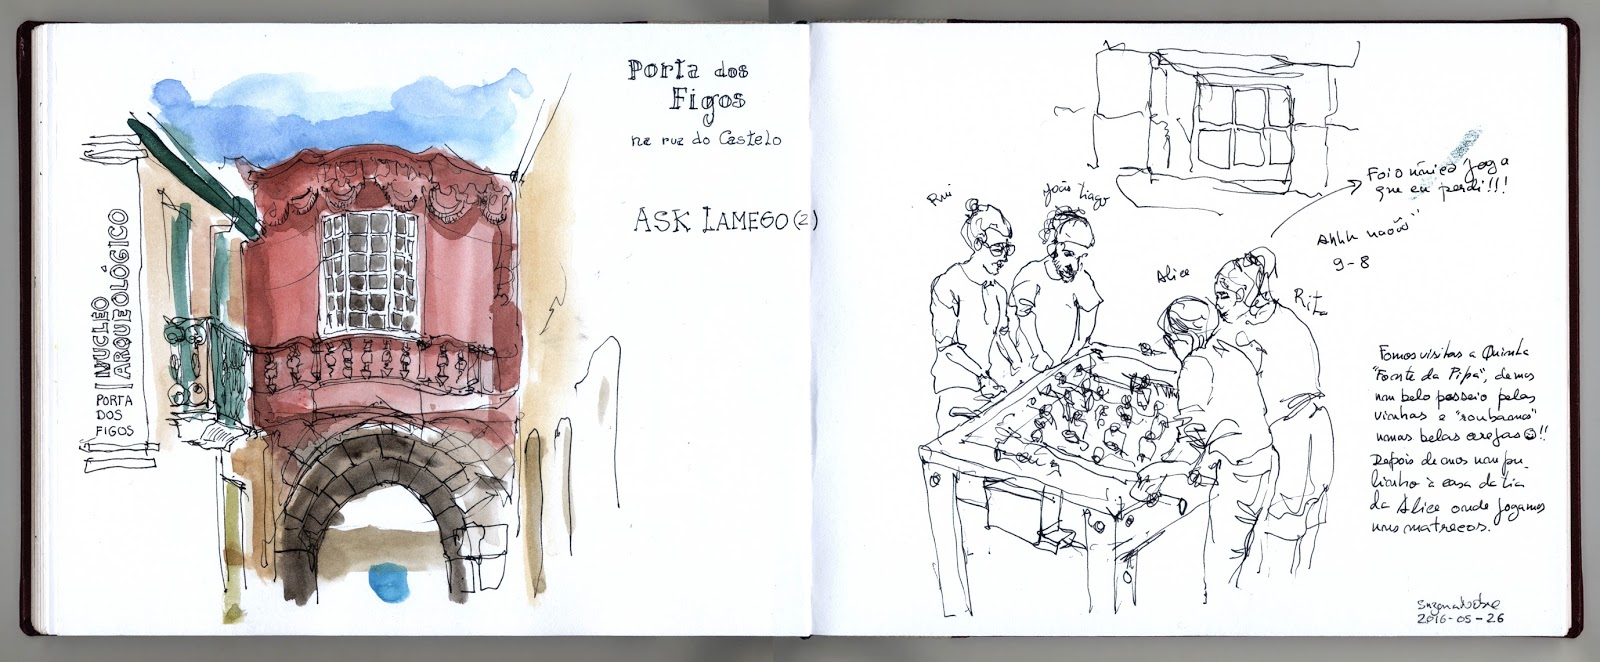 Porta dos
Figos
na rua do Castelo
ASK LAMEGO (2)
NÚCLEO
ARQUEOLÓGICO
PORTA
DOS
FIGOS
Rui
João Tiago
Alice
Rita
Foi o único jogo
que eu perdi!!!
Ahhh naõõõ
9-8
Fomos visitar a Quinta
"Fonte da Pipa", demos
um belo passeio pelas
vinhas e "roubamos"
umas belas cerejas ☺!!
Depois demos um pu-
linho à casa da tia
da Alice onde jogamos
uns matrecos.
Suzana Nobre
2016-05-26